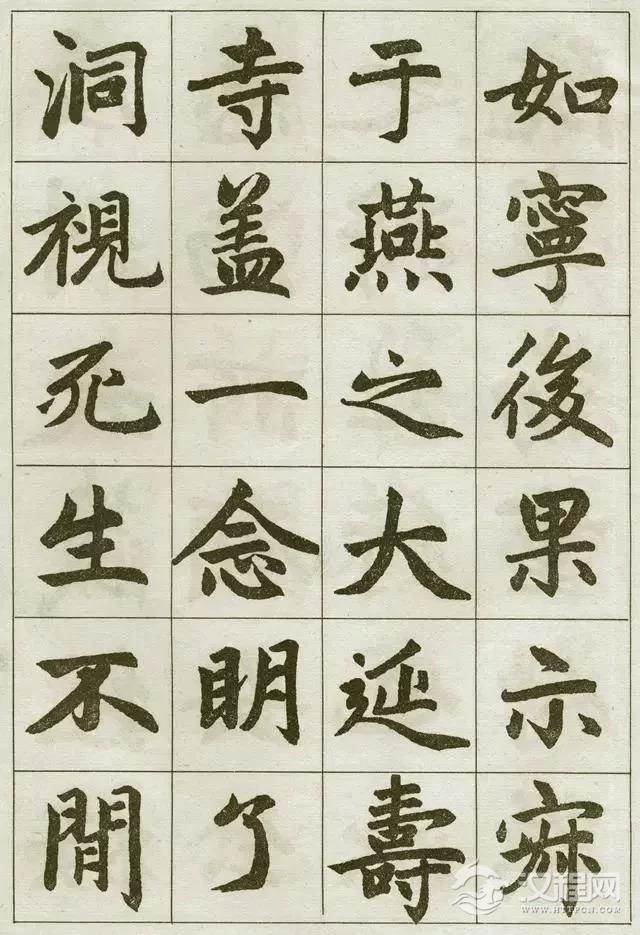 如寧後果示寂
于燕之大延壽
寺盖一念明了
洞視死生不間
汉程网
WWW.HTTPCN.COM